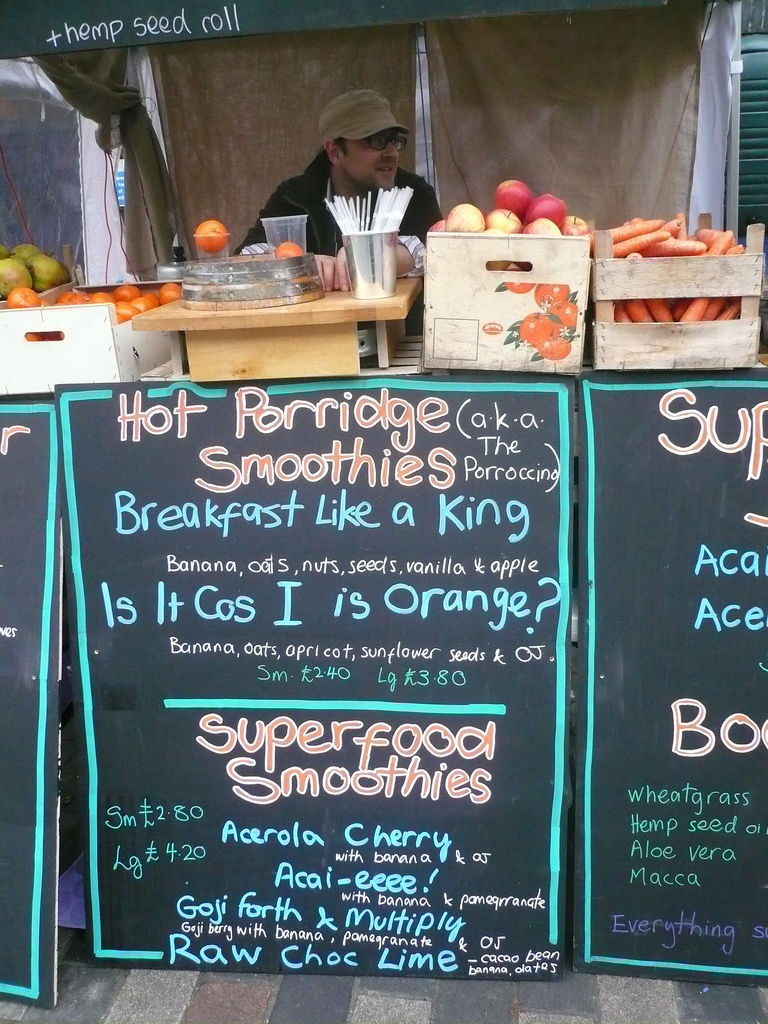 +hemp seed roll
Hot Porridge (a.k.a.
Smoothies The Porroccino)
Breakfast Like a King
Banana, oats, nuts, seeds, vanilla & apple
Is It Cos I is Orange?
Banana, oats, apricot, sunflower seeds & OJ.
Sm. £2.40 Lg £3.80
Superfood
Smoothies
Sm £2.80
Lg £4.20
Acerola Cherry
with banana & OJ
Acai-eeee!
with banana & pomegrranate
Goji forth & Multiply
Goji berry with banana, pomegranate & OJ
Raw Choc Lime - cacao bean
banana, dates
Acai
Wheatgrass
Hemp seed oi
Aloe vera
Macca
Everything